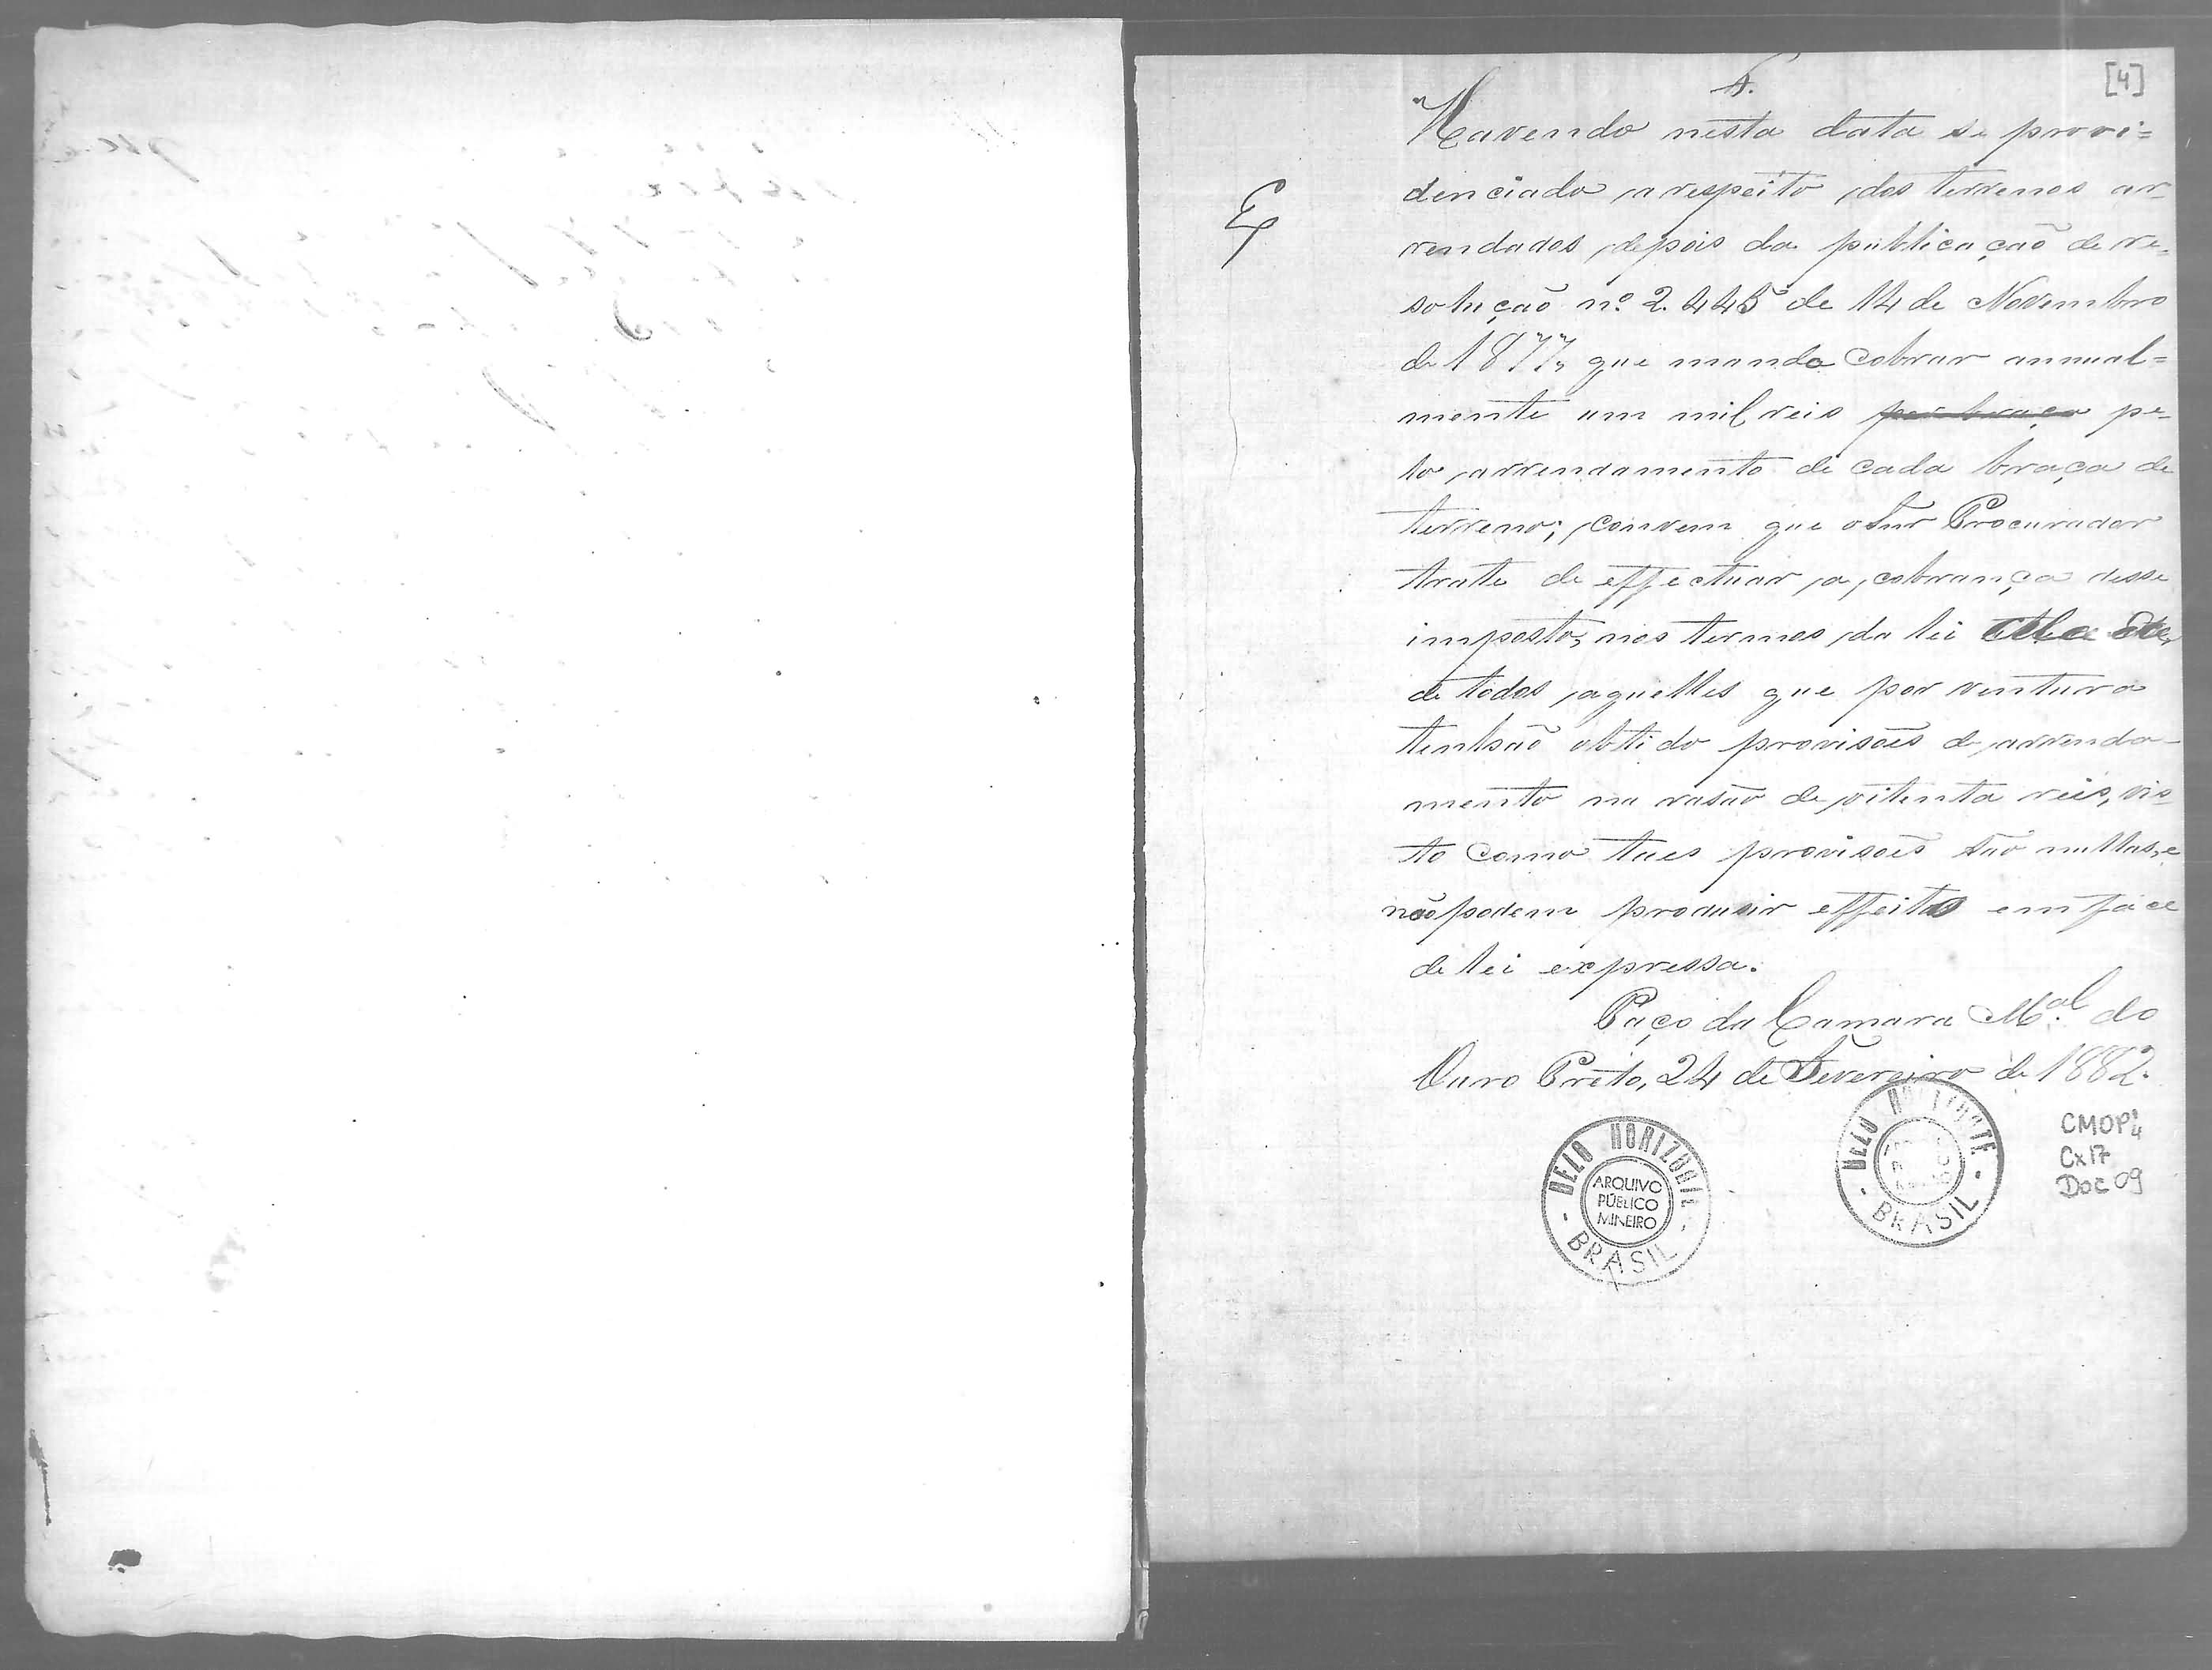 [4]
4.
Havendo nesta data se provi=
denciado a respeito dos terrenos ar-
rendados depois da publicação de re-
solução nº 2.445 de 14 de Novembro
de 1877, que manda cobrar annual=
mente um mil reis por braça pe-
lo arrendamento de cada braça de
terreno; convem que o Snr Procurador
trate de effectuar a cobrança desse
imposto, nos termos da lei
de todos aquelles que por ventura
tenhão obtido provisões de arrenda-
mento na rasão de oitenta reis, vis-
to como taes provisões são nullas, e
não podem produsir effeitos em face
de lei expressa.
Paço da Camara M.al do
Ouro Preto, 24 de Fevereiro de 1882.
BELO HORIZONTE
ARQUIVO
PÚBLICO
MINEIRO
- BRASIL -
BELO HORIZONTE
- BRASIL -
CMOP 4
Cx 17
Doc 09